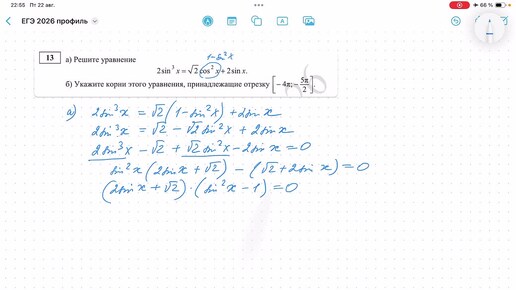 22:55 Пт 22 авг.
66 %
ЕГЭ 2026 профиль
1-sin²x
13 а) Решите уравнение
2sin³ x = √2 cos² x + 2sin x.
б) Укажите корни этого уравнения, принадлежащие отрезку [-4π; -5π/2].
а) 2sin³x = √2(1-sin²x) + 2sinx
2sin³x = √2 - √2sin²x + 2sinx
2sin³x - √2 + √2sin²x - 2sinx = 0
sin²x(2sinx + √2) - (√2 + 2sinx) = 0
(2sinx + √2)·(sin²x - 1) = 0